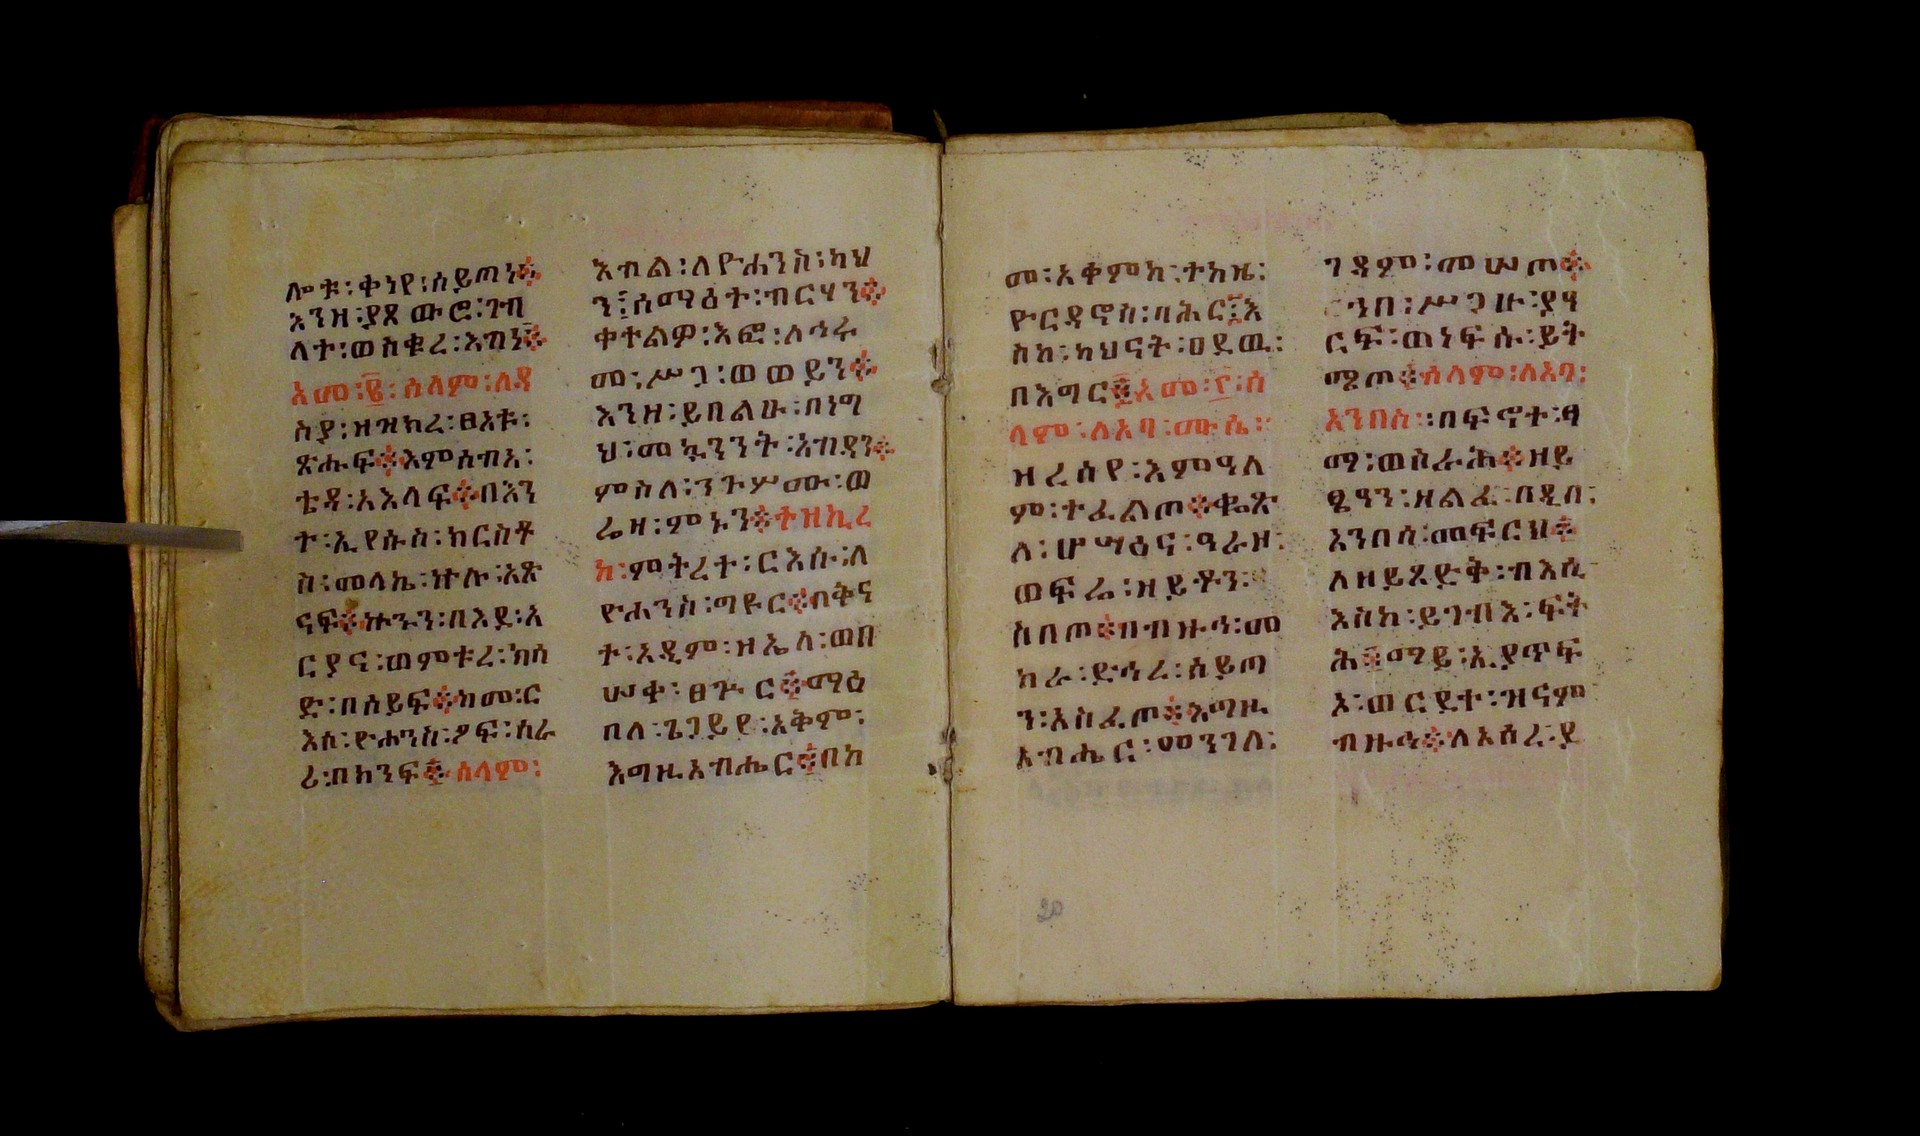 ሎቱ፡ቀነየ፡ሰይጠነ፨
እንዘ፡ያጸውሮ፡ገብ
ለተ፡ወስቁረ፡እዝነ፨
አመ፡፱፡ሰላም፡ለዳ
ስያ፡ዘዝክረ፡ፀአቱ፡
ጽሑፍ፨እምሰብአ፡
ቴዳ፡አእላፍ፨በእን
ተ፡ኢየሱስ፡ክርስቶ
ስ፡መላኤ፡ኵሉ፡አጽ
ናፍ፨ኵኑን፡በእደ፡አ
ርያና፡ወምቱረ፡ክሳ
ድ፡በሰይፍ፨ከመ፡ር
እሰ፡ዮሐንስ፡ዖፍ፡ሰራ
ሪ፡በክንፍ፨ሰላም፡
እብል፡ለዮሐንስ፡ካህ
ን፤ሰማዕት፡ብርሃን፨
ቀተልዎ፡እፎ፡ለኅሩ
መ፡ሥጋ፡ወወይን፨
እንዘ፡ይበልሁ፡በነግ
ህ፡መኳንንት፡አብዳን፨
ምስለ፡ንጉሦሙ፡ወ
ሬዛ፡ምኑን፨ተዝኪረ
ከ፡ምትረተ፡ርእሱ፡ለ
ዮሐንስ፡ግዩር፨በቅና
ተ፡አዲም፡ዘኤለ፡ወበ
ሠቀ፡ፀጕር፨ማዕ
በለ፡ጌጋይየ፡አቅም፡
እግዚአብሔር፨በከ
መ፡አቀምከ፡ተከዜ፡
ዮርዳኖስ፡ባሕር፤እ
ስከ፡ካህናት፡ዐደዉ፡
በእግር፨አመ፡፲፡ሰ
ላም፡ለአባ፡ሙሴ፡
ዝረሰየ፡እምዓለ
ም፡ተፈልጦ፨ቈጽ
ለ፡ሆሣዕና፡ዓራዘ፡
ወፍሬ፡ዘይቶን፡
ስበጦ፨በብዙኅ፡መ
ከራ፡ድኅረ፡ሰይጣ
ን፡አስፈጦ፨እግዚ
አብሔር፡መንገለ፡
ገዳም፡መሠጦ፨
ኀበ፡ሥጋሁ፡ያዓ
ርፍ፡ወነፍሱ፡ይት
ሜጦ፨ሰላም፡ለአባ፡
እንበስ፡፡በፍኖተ፡ፃ
ማ፡ወስራሕ፨ዘይ
ፄዓን፡ዘልፈ፡በዲበ፡
አንበሳ፡መፍርህ፨
ለዘይጸድቅ፡ብእሲ
እስከ፡ይገብእ፡ፍት
ሕ፨ማይ፡ኢያጥፍ
ኦ፡ወርደተ፡ዝናም
ብዙኅ፨ለአሰረ፡ያ
20